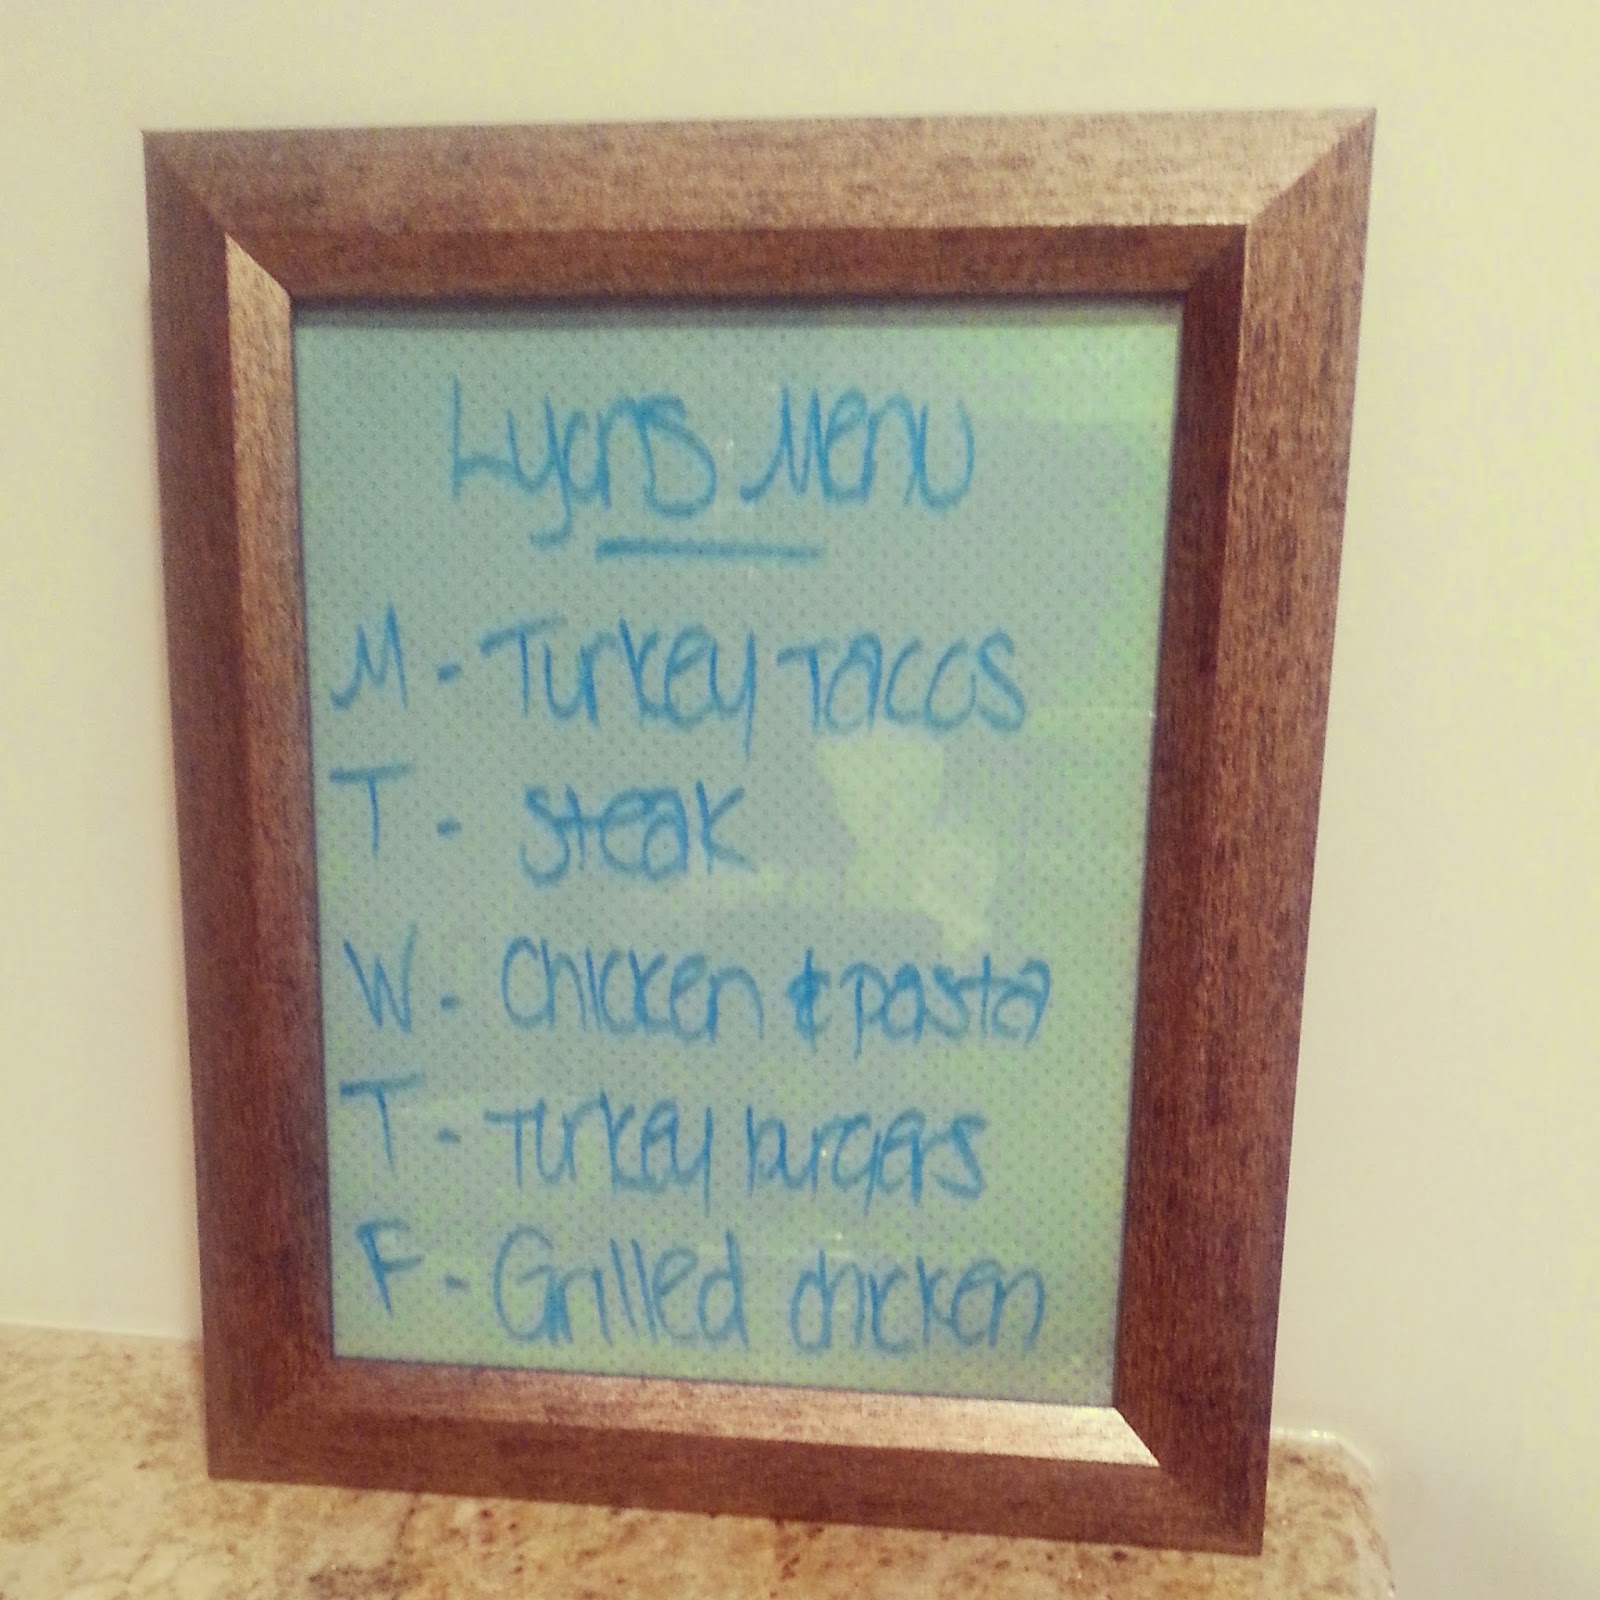 Lyons Menu
M - Turkey Tacos
T - steak
W - Chicken & pasta
T - Turkey burgers
F - Grilled chicken